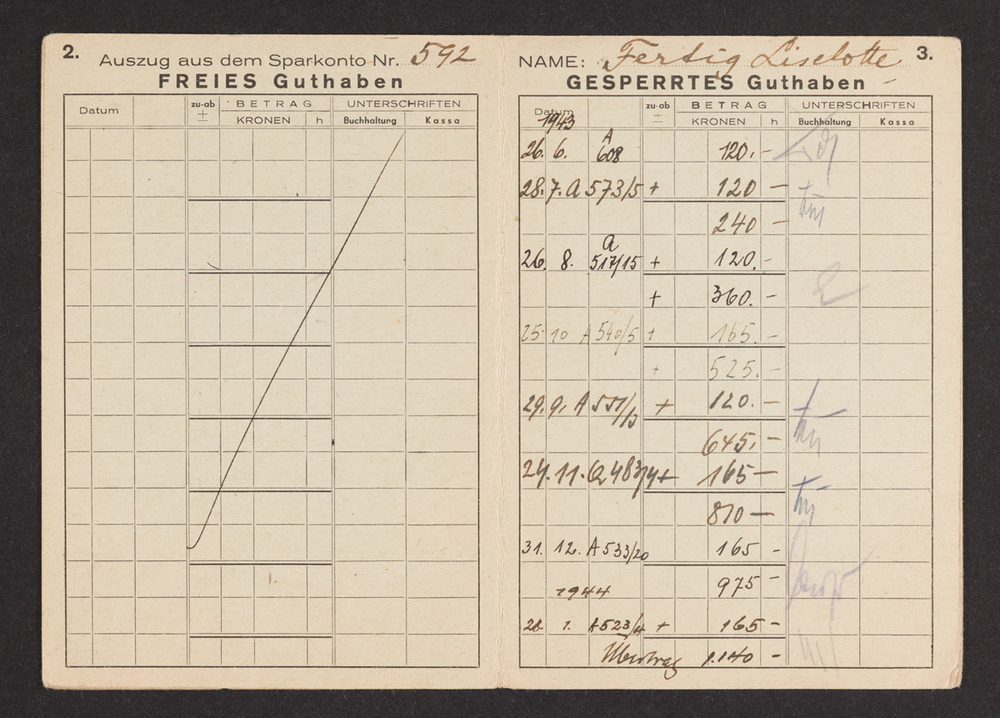 2.
Auszug aus dem Sparkonto Nr. 592
FREIES Guthaben
Datum zu-ab ± BETRAG UNTERSCHRIFTEN
KRONEN h Buchhaltung Kassa
3.
NAME: Fertig Liselotte
GESPERRTES Guthaben
Datum zu-ab ± BETRAG UNTERSCHRIFTEN
KRONEN h Buchhaltung Kassa
1943
26. 6. A 608 120.-
28. 7. A 573/5 + 120 -
240 -
26. 8. A 517/15 + 120.-
+ 360.-
25. 10 A 540/5 + 165.-
+ 525.-
29. 9. A 551/3 + 120.-
645.-
24. 11. 483/4 + 165 -
810 -
31. 12. A 533/20 165 -
975 -
1944
28. 1. A 523/4 + 165 -
Übertrag 1.140 -